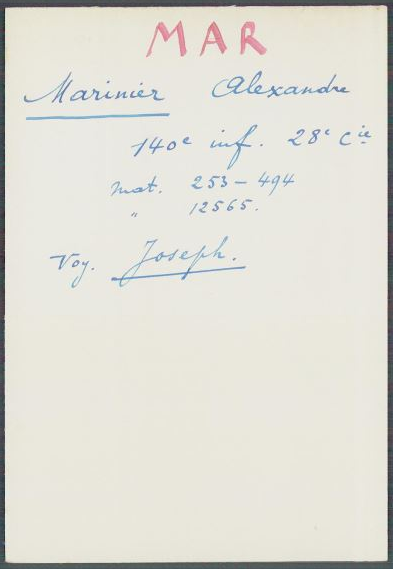 MAR
Marinier Alexandre
140e inf. 28e Cie
mat. 253-494
" 12565.
Voy. Joseph.